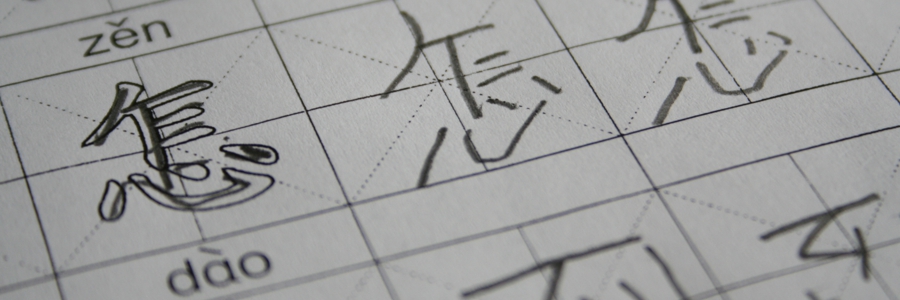 zěn
怎 怎 怎
dào